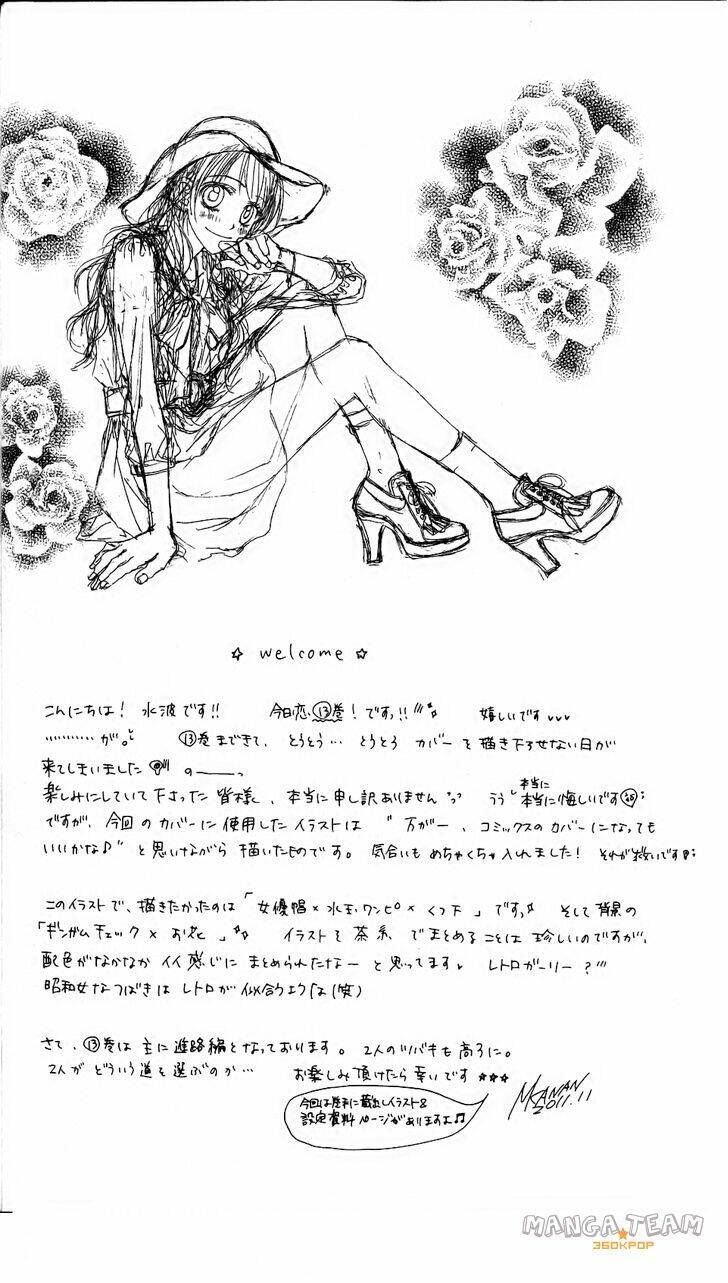 ☆ welcome ☆
こんにちは! 水波です!! 今日恋⑬巻!ですっ!! 嬉しいです
…………が。 ⑬巻まできて、とうとう… とうとう カバーを描き下ろせない日が
来てしまいました の
楽しみにしていて下さった皆様、本当に申し訳ありません うう 本当に
本当に悔しいです
ですが、今回のカバーに使用したイラストは "万が一、コミックスのカバーになっても
いいかな♪" と思いながら描いたものです。気合いもめちゃくちゃ入れました! それが救いです
このイラストで、描きたかったのは「女優帽×水玉ワンピ×くつ下」ですっ そして背景の
「ギンガムチェック×お花」 イラストを茶系でまとめることは珍しいのですが、
配色がなかなかイイ感じにまとめられたなーと思ってます レトロガーリー?
昭和女なつばきはレトロが似合うよな(笑)
さて、⑬巻は主に進路編となっております。2人のツバキも高3に。
2人がどういう道を選ぶのか… お楽しみ頂けたら幸いです ★★★
今回は巻末に蔵出しイラスト&
設定資料ページがありますよ♫
MKANAN
2011.11
MANGA TEAM
360KPOP